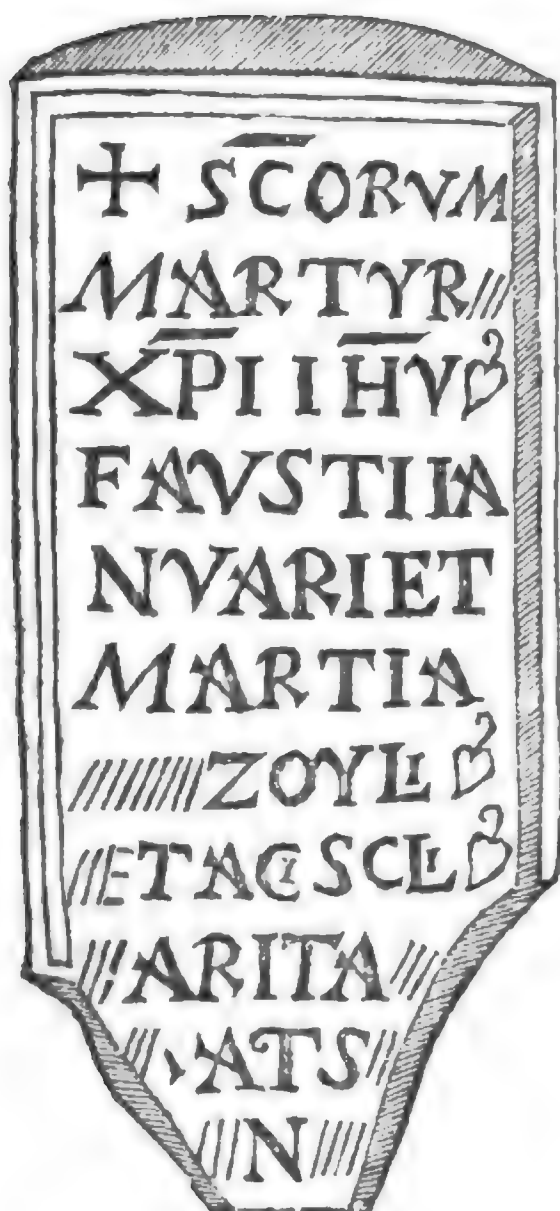 + SCORVM
MARTYR
XPI IHV
FAVSTI IA
NVARI ET
MARTIA
ZOYLI
ET ACISCLI
ARITA
ATS
N